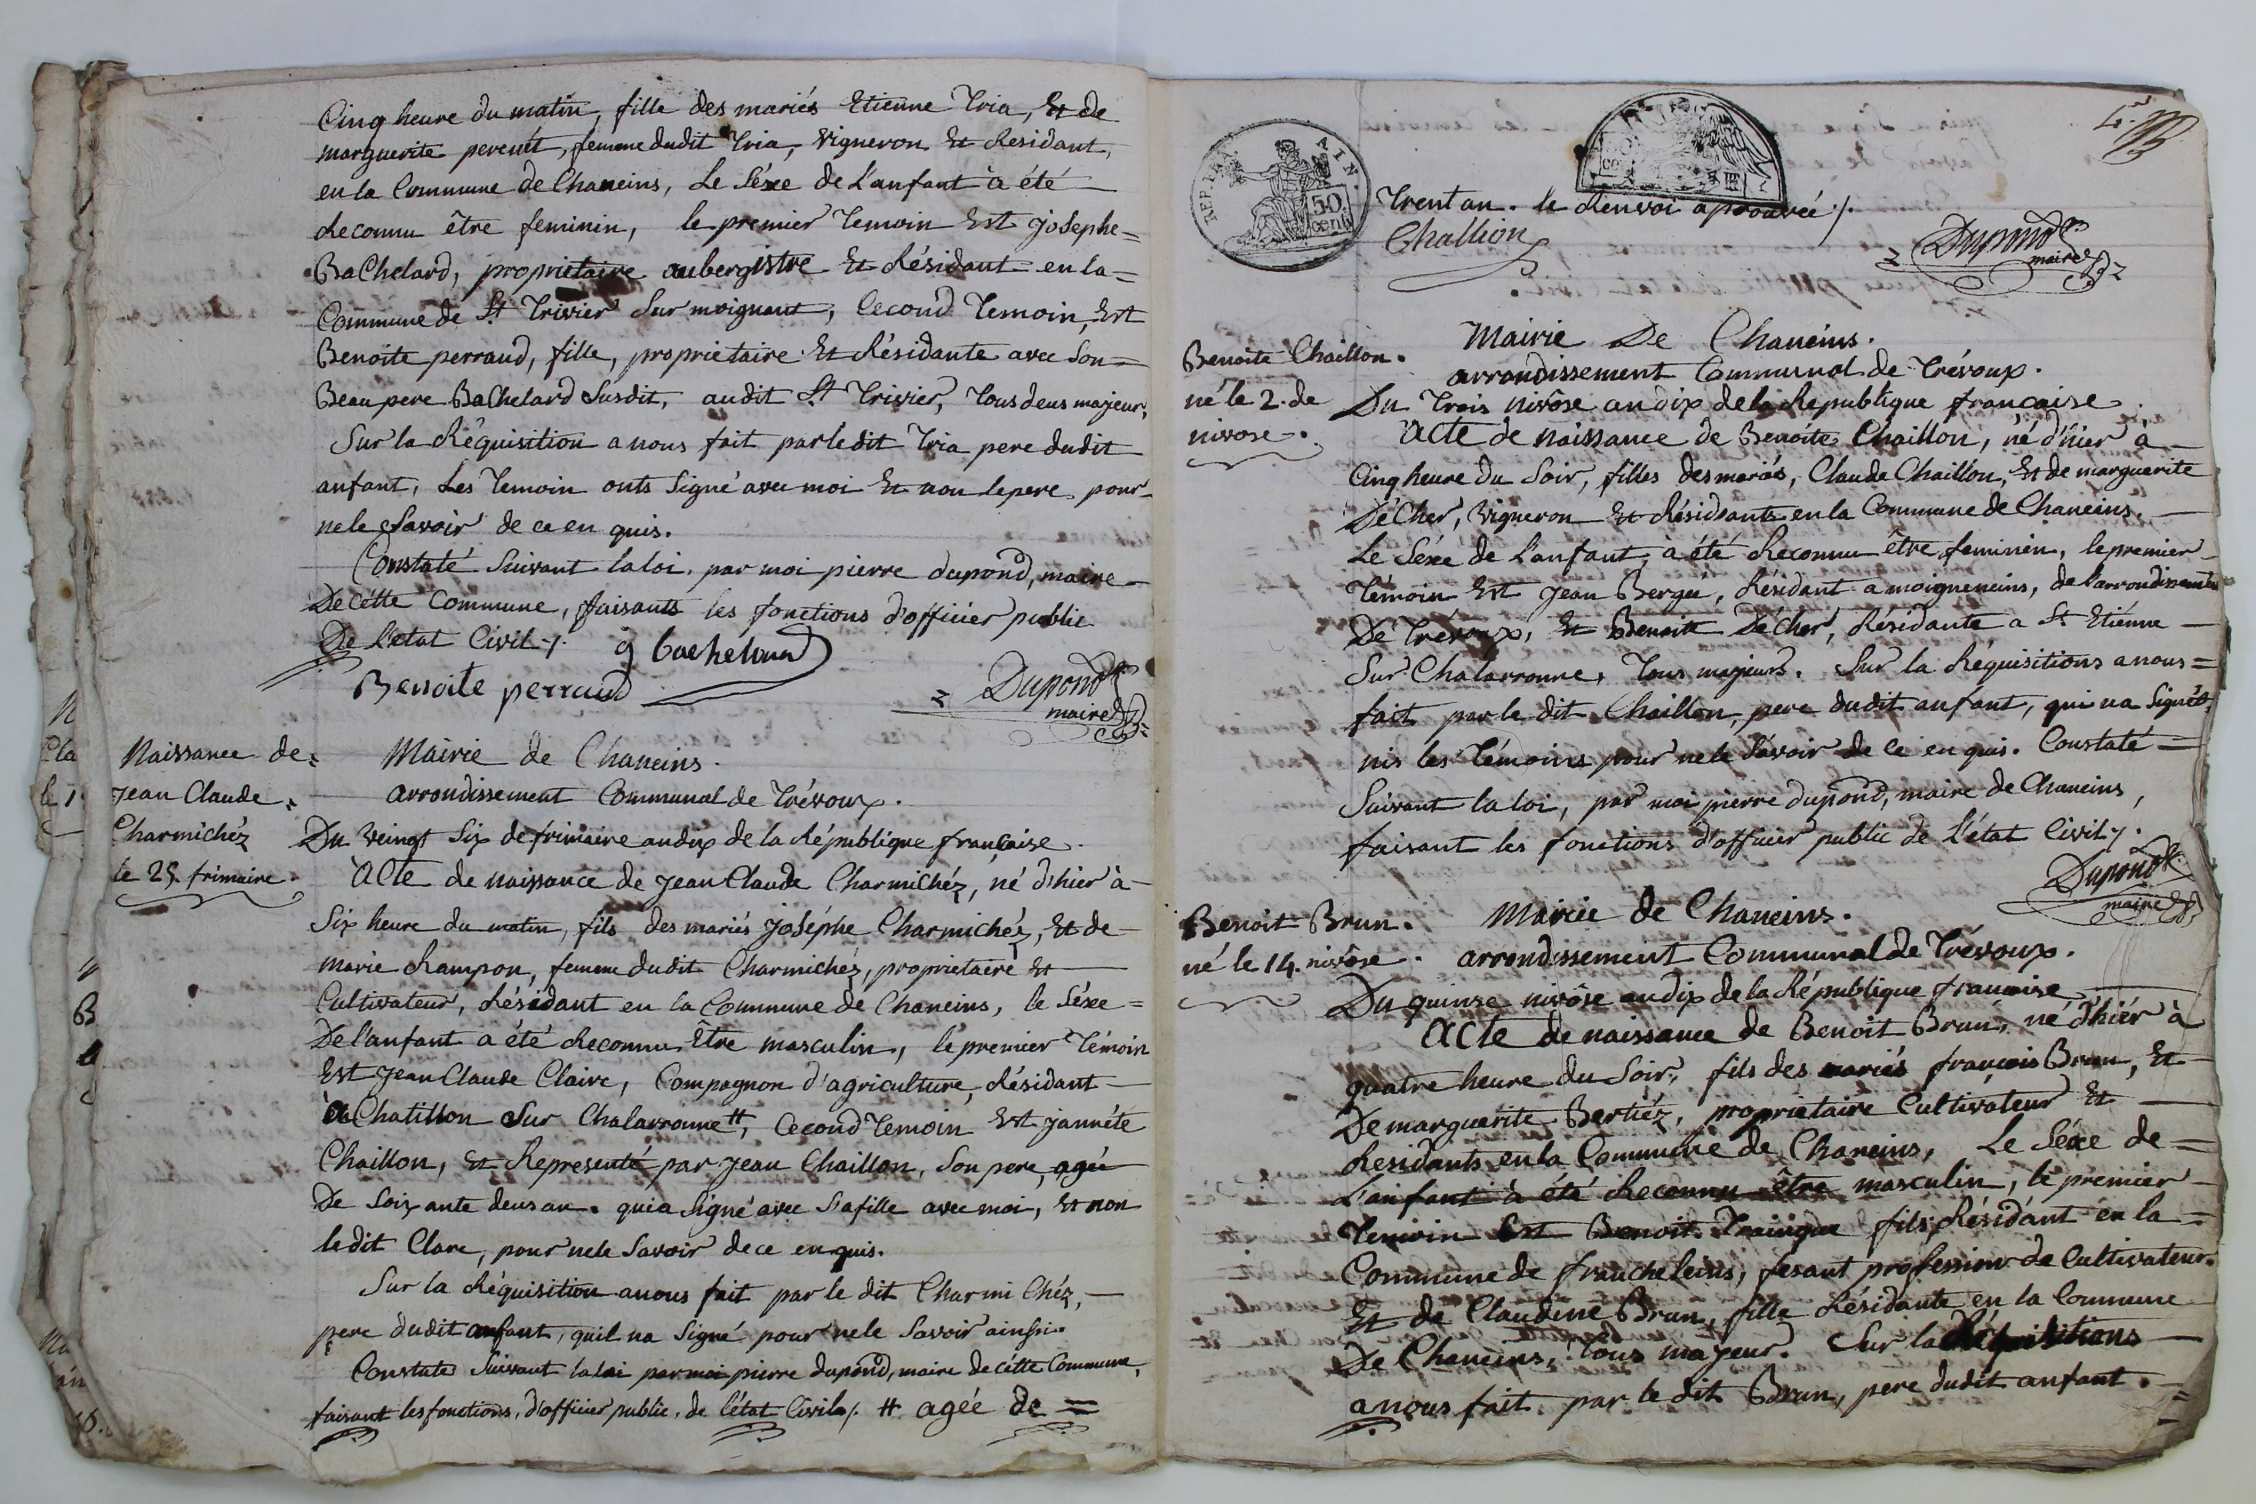 Cinq heure du matin, fille des mariés Etienne Tria, Et de
marguerite perenét, femme dudit Tria, vigneron Et Residant,
en la Commune de Chaneins, Le Séxe de L'anfant à été
Reconnu être feminin, le premier Temoin Est Josephe=
BaChelard, proprietaire aubergistre Et Résidant en la=
Commune de St Trivier Sur moignant, Cecond Temoin, Est
Benoite perraud, fille, proprietaire Et Résidante avec Son=
Beau pere BaChelard Susdit, audit St Trivier, Tous deus majeur,
Sur la Réquisition a nous fait par le dit Tria pere dudit
anfant, Les Temoin onts Signé avec moi Et non le pere pour
ne le Savoir de ce en quis.
Constaté Suivant la loi par moi pierre dupond, maire
De cétte Commune, faisants les fonctions d'officier public
De L'etat Civil ./.
J bachelard
Benoite perraud
Dupond
maire
Naissance de
Jean Claude
Charmichéz
le 25. frimaire.
Mairie de Chaneins.
arrondissement Communal de Trévoux.
Du Veingt Six de frimaire an dix de la République française.
Acte de naissance de Jean Claude Charmichéz, né d'hier à
Six heure du matin, fils des mariés Joséphe Charmichéz, Et de
marie Rampon, femme dudit Charmichéz, proprietaire Et
Cultivateur, Résidant en la Commune de Chaneins, le Séxe=
De l'anfant a été Reconnu Être masculin, le premier Témoin
Est Jean Claude Claire, Compagnon d'agriculture, Résidant
à Chatillon Sur Chalaronne #, Cecond Temoin Est jannéte
Chaillon, Et Representé par Jean Chaillon, Son pere, agée
De Soixante deus an. qui a Signé avec Sa fille avec moi, Et non
le dit Clare, pour ne le Savoir de ce en quis.
Sur la Réquisition a nous fait par le dit Charmi Chéz,
pere dudit anfant, quil na Signé pour ne le Savoir ainssi.
Constaté Suivant la loi par moi pierre dupond, maire de cétte Commune,
faisant les fonctions, d'officier public, de l'état Civil ./. # agée de =
Trent an. le Renvoi aprouvée ./.
REP. FRA. AIN.
50. cent.
Challion
Dupond
maire
Benoite Chaillon.
né le 2. de
nivose.
Mairie De Chaneins.
arrondissement Communal de Trévoux.
Du Trois nivôse an dix de la République française
Acte de naissance de Benoite Chaillon, né d'hier à
Cinq heure du Soir, filles des mariés, Claude Chaillon, Et de marguerite
DéCher, Vigneron Et Résidsants en la Commune de Chaneins.
Le Séxe de L'anfant à été Reconnu être feminin, le premier
Témoin Est Jean Bergée, Résidant a moigneneins, de l'arrondissement
De Trévoux, Et Benoitt DéCher, Résidante a St Etiénne
Sur Chalarronne, Tous majeurs. Sur la Réquisitions a nous=
fait par le dit Chaillon, pere dudit anfant, qui na Signéé,
nis les Témoins pour ne le Savoir de Ce en quis. Constaté=
Suivant la loi, par moi pierre dupond, maire de Chaneins,
faisant les fonctions d'officier public de L'état Civil ./.
Dupond
maire
Benoit Brun.
né le 14. nivôse.
Mairie de Chaneins.
arrondissement Communal de Trévoux.
Du quinze nivôse an dix de la République francoise
Acte de naissance de Benoit Brun, né d'hiér à
quatre heure du Soir, fils des mariés françois Brun, Et
De marguerite Bertiéz, proprietaire Cultivateur Et
Residants en la Commune de Chaneins, Le Séxe de=
L'anfant à été Reconnu être masculin, le premier
Temoin Est Benoit fils, Résidant en la=
Commune de francheleins, fesant profession de Cultivateur.
Et de Claudine Brun, fille Résidante en la Commune
De Chaneins, Tous majeur. Sur la Réquisitions
a nous fait par le dit Brun, pere dudit anfant.